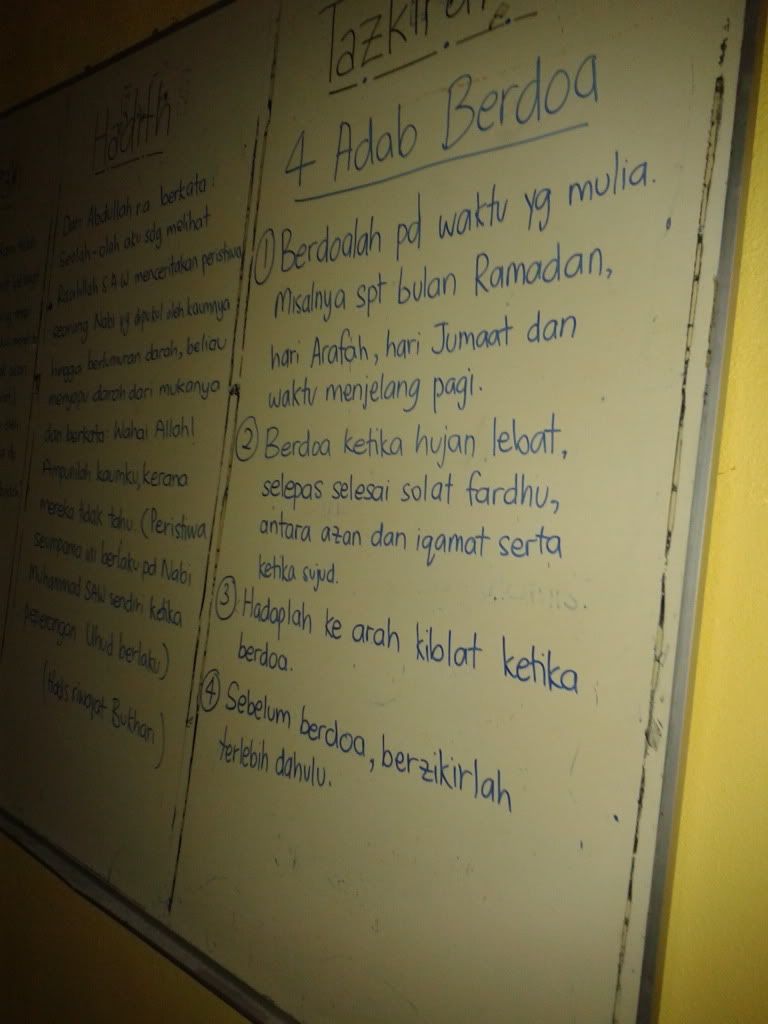 Hadith
Dari Abdullah ra berkata:
Seolah-olah aku sdg melihat
Rasulullah S.A.W menceritakan peristiwa
seorang Nabi yg dipukul oleh kaumnya
hingga berlumuran darah, beliau
menyapu darah dari mukanya
dan berkata: Wahai Allah!
Ampunilah kaumku, kerana
mereka tidak tahu. (Peristiwa
seumpama ini berlaku pd Nabi
Muhammad SAW sendiri ketika
peperangan Uhud berlaku)
(Hadis riwayat Bukhari)
Tazkirah
4 Adab Berdoa
① Berdoalah pd waktu yg mulia.
Misalnya spt bulan Ramadan,
hari Arafah, hari Jumaat dan
waktu menjelang pagi.
② Berdoa ketika hujan lebat,
selepas selesai solat fardhu,
antara azan dan iqamat serta
ketika sujud.
③ Hadaplah ke arah kiblat ketika
berdoa.
④ Sebelum berdoa, berzikirlah
terlebih dahulu.